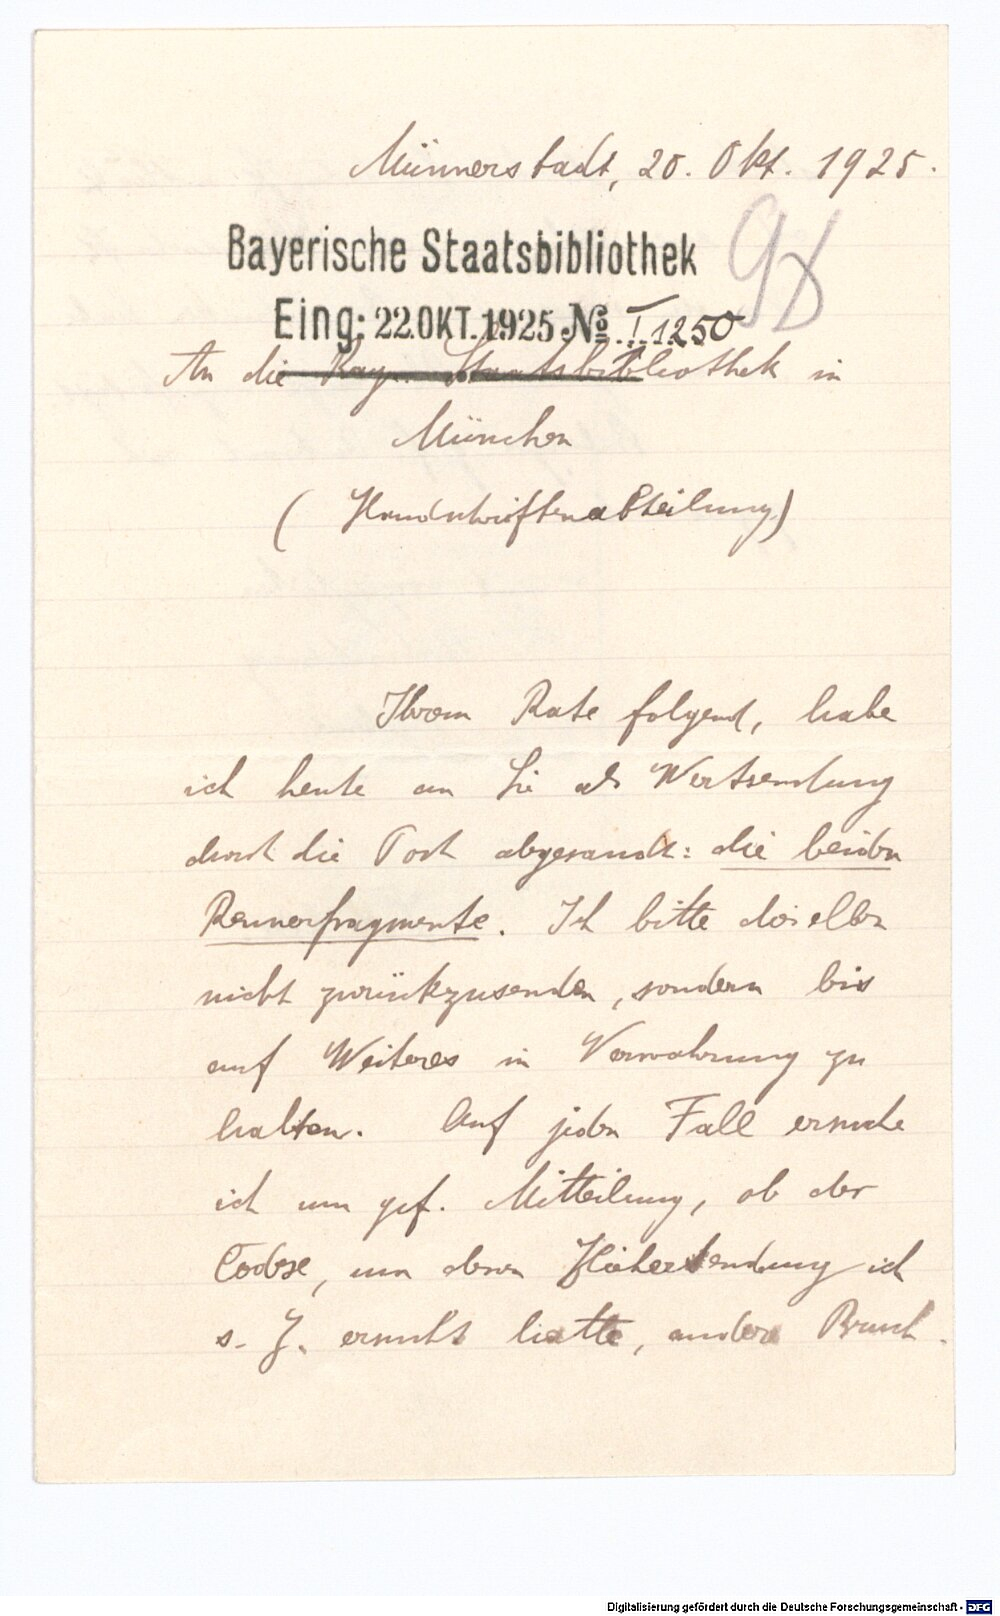 Münnerstadt, 20. Okt. 1925.
98
Bayerische Staatsbibliothek
Eing: 22.OKT.1925 № I.1250
An die Bay. Staatsbibliothek in
München
(Handschriftenabteilung)
Ihrem Rate folgend, habe
ich heute an Sie als Wertsendung
durch die Post abgesandt: die beiden
Rennerfragmente. Ich bitte dieselben
nicht zurückzusenden, sondern bis
auf Weiteres in Verwahrung zu
halten. Auf jeden Fall ersuche
ich um gef. Mitteilung, ob der
Codex, um deren Hiehersendung ich
s. Z. ersucht hatte, andere Bruch.
Digitalisierung gefördert durch die Deutsche Forschungsgemeinschaft - DFG